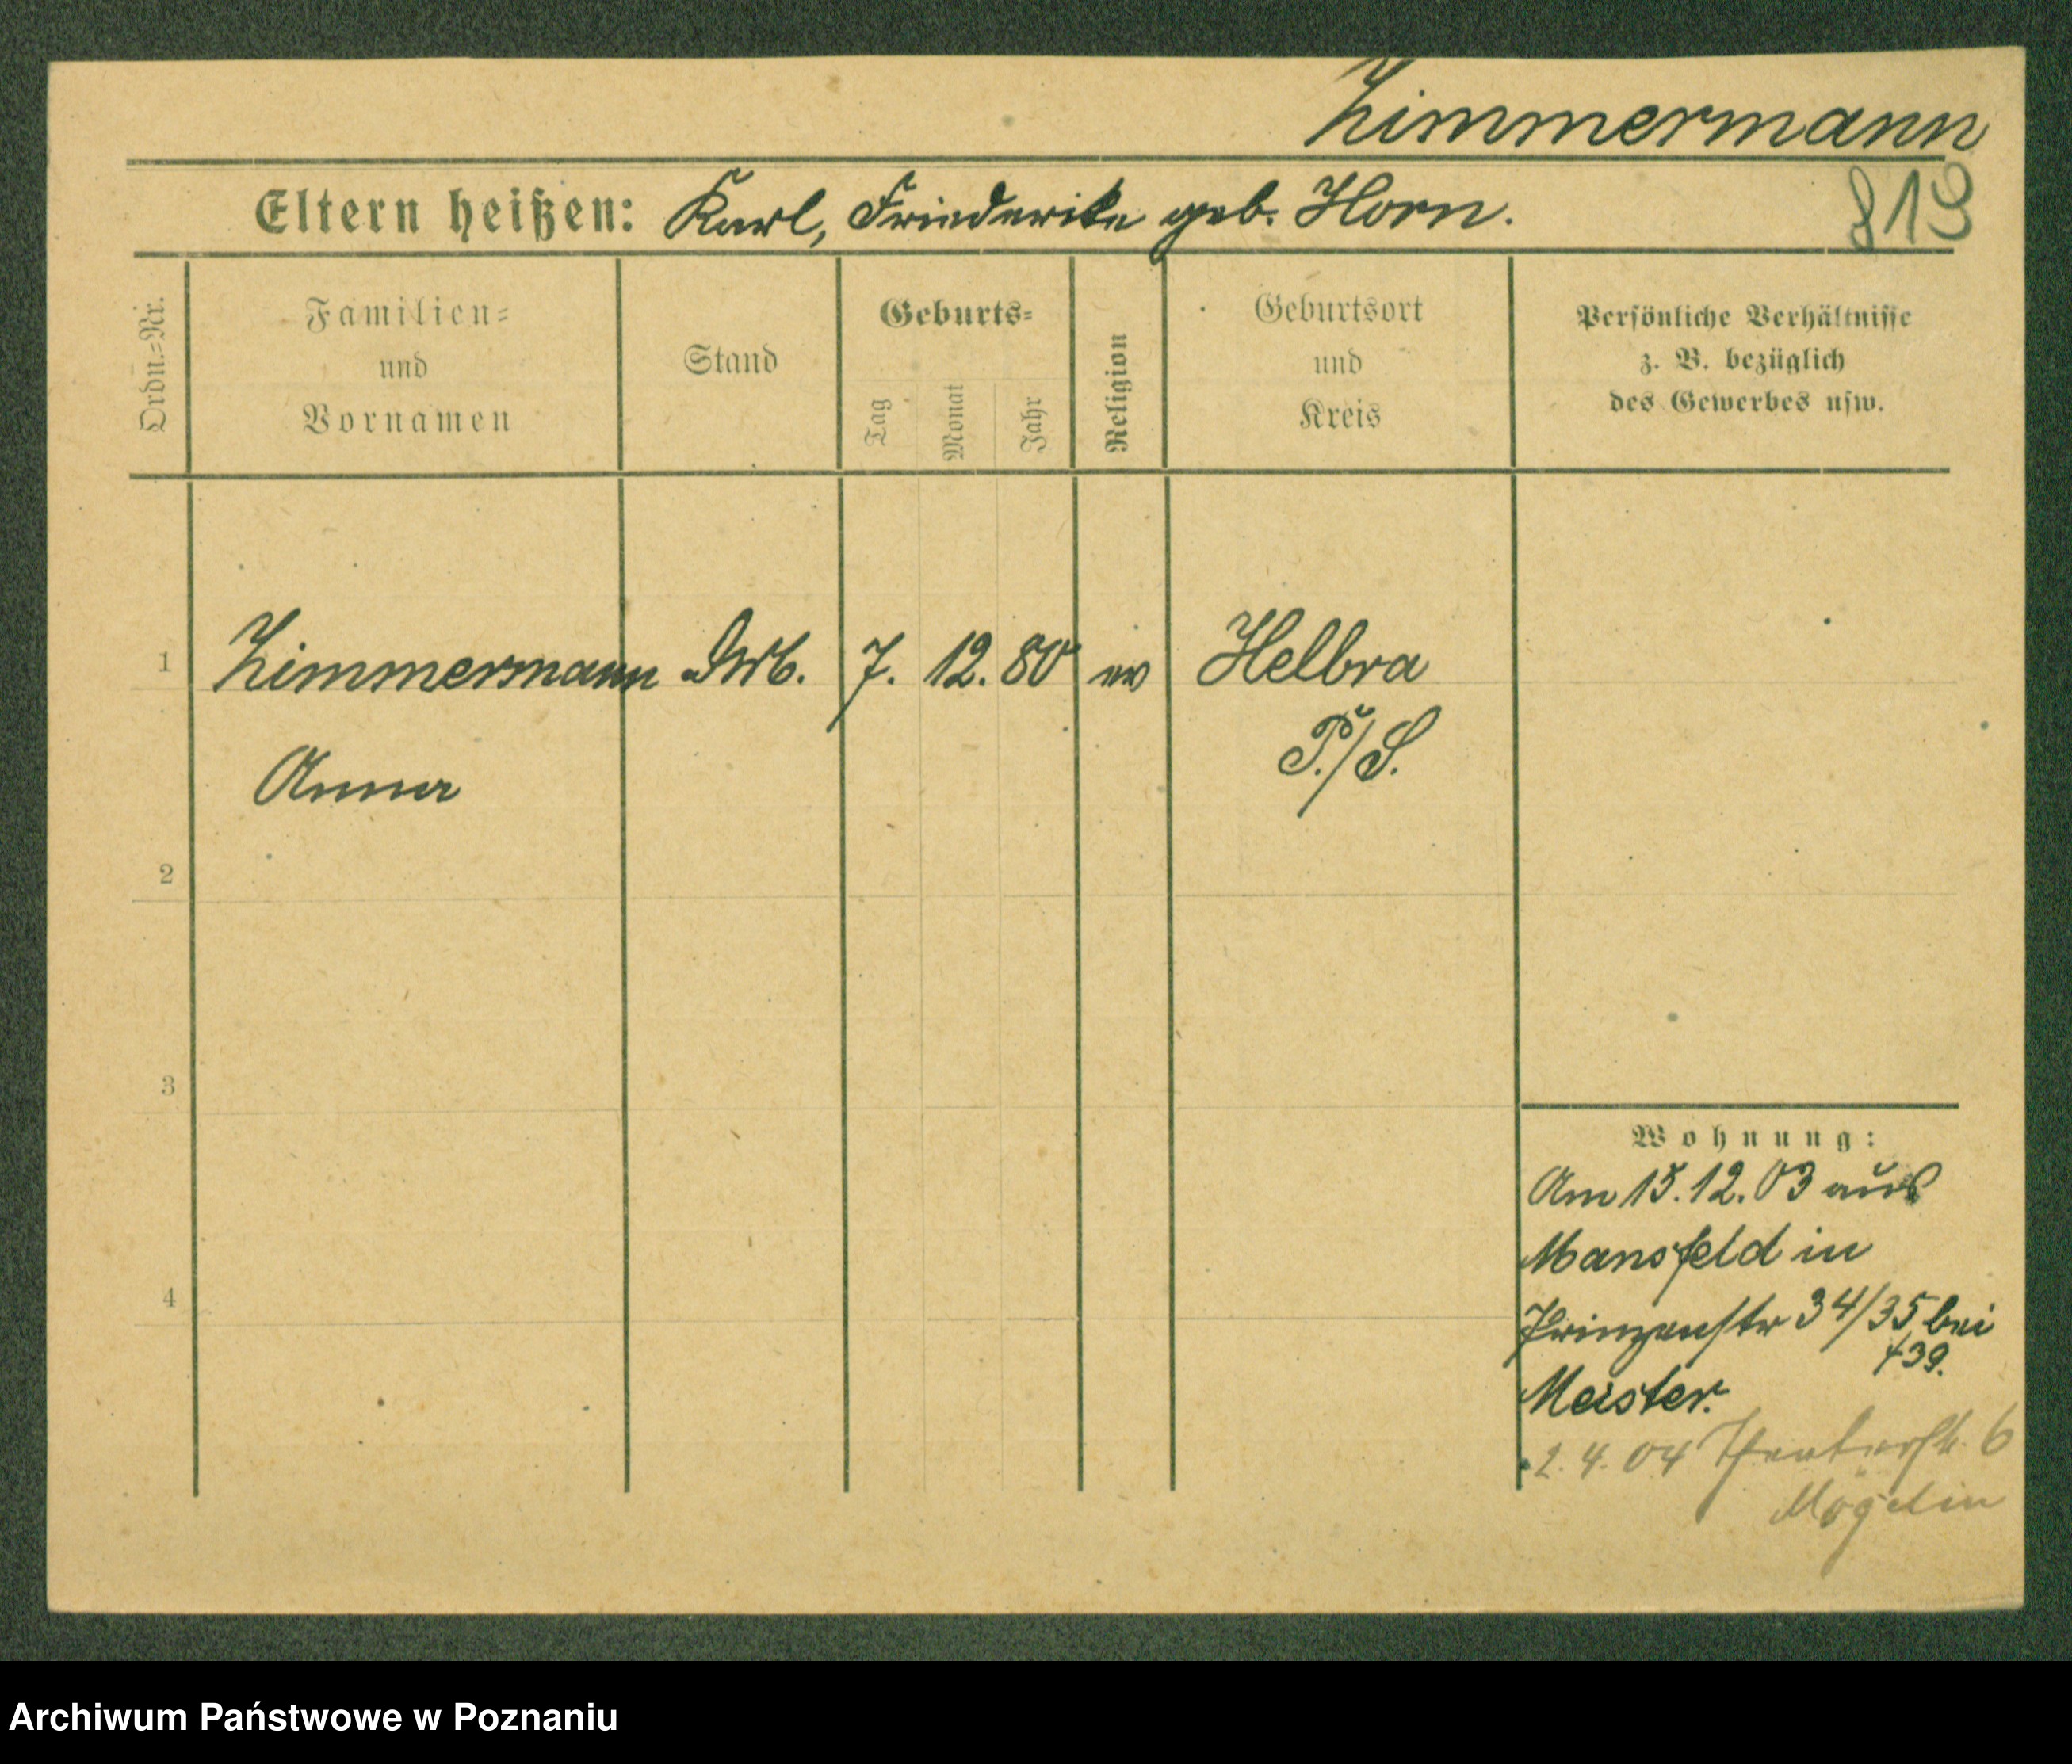 Zimmermann
819
Eltern heißen: Karl, Friederike geb. Horn.
Ordn.-Nr.
Familien-
und
Vornamen
Stand
Geburts-
Tag
Monat
Jahr
Religion
Geburtsort
und
Kreis
Persönliche Verhältnisse
z. B. bezüglich
des Gewerbes usw.
1 Zimmermann 7. 12. 80 ev Helbra
P./S.
Anna
2
3
4
Wohnung:
Am 15.12.03 aus
Mansfeld in
Prinzenstr 34/35 bei
Meister.
2. 4. 04 Theaterstr. 6
Mögelin
Archiwum Państwowe w Poznaniu